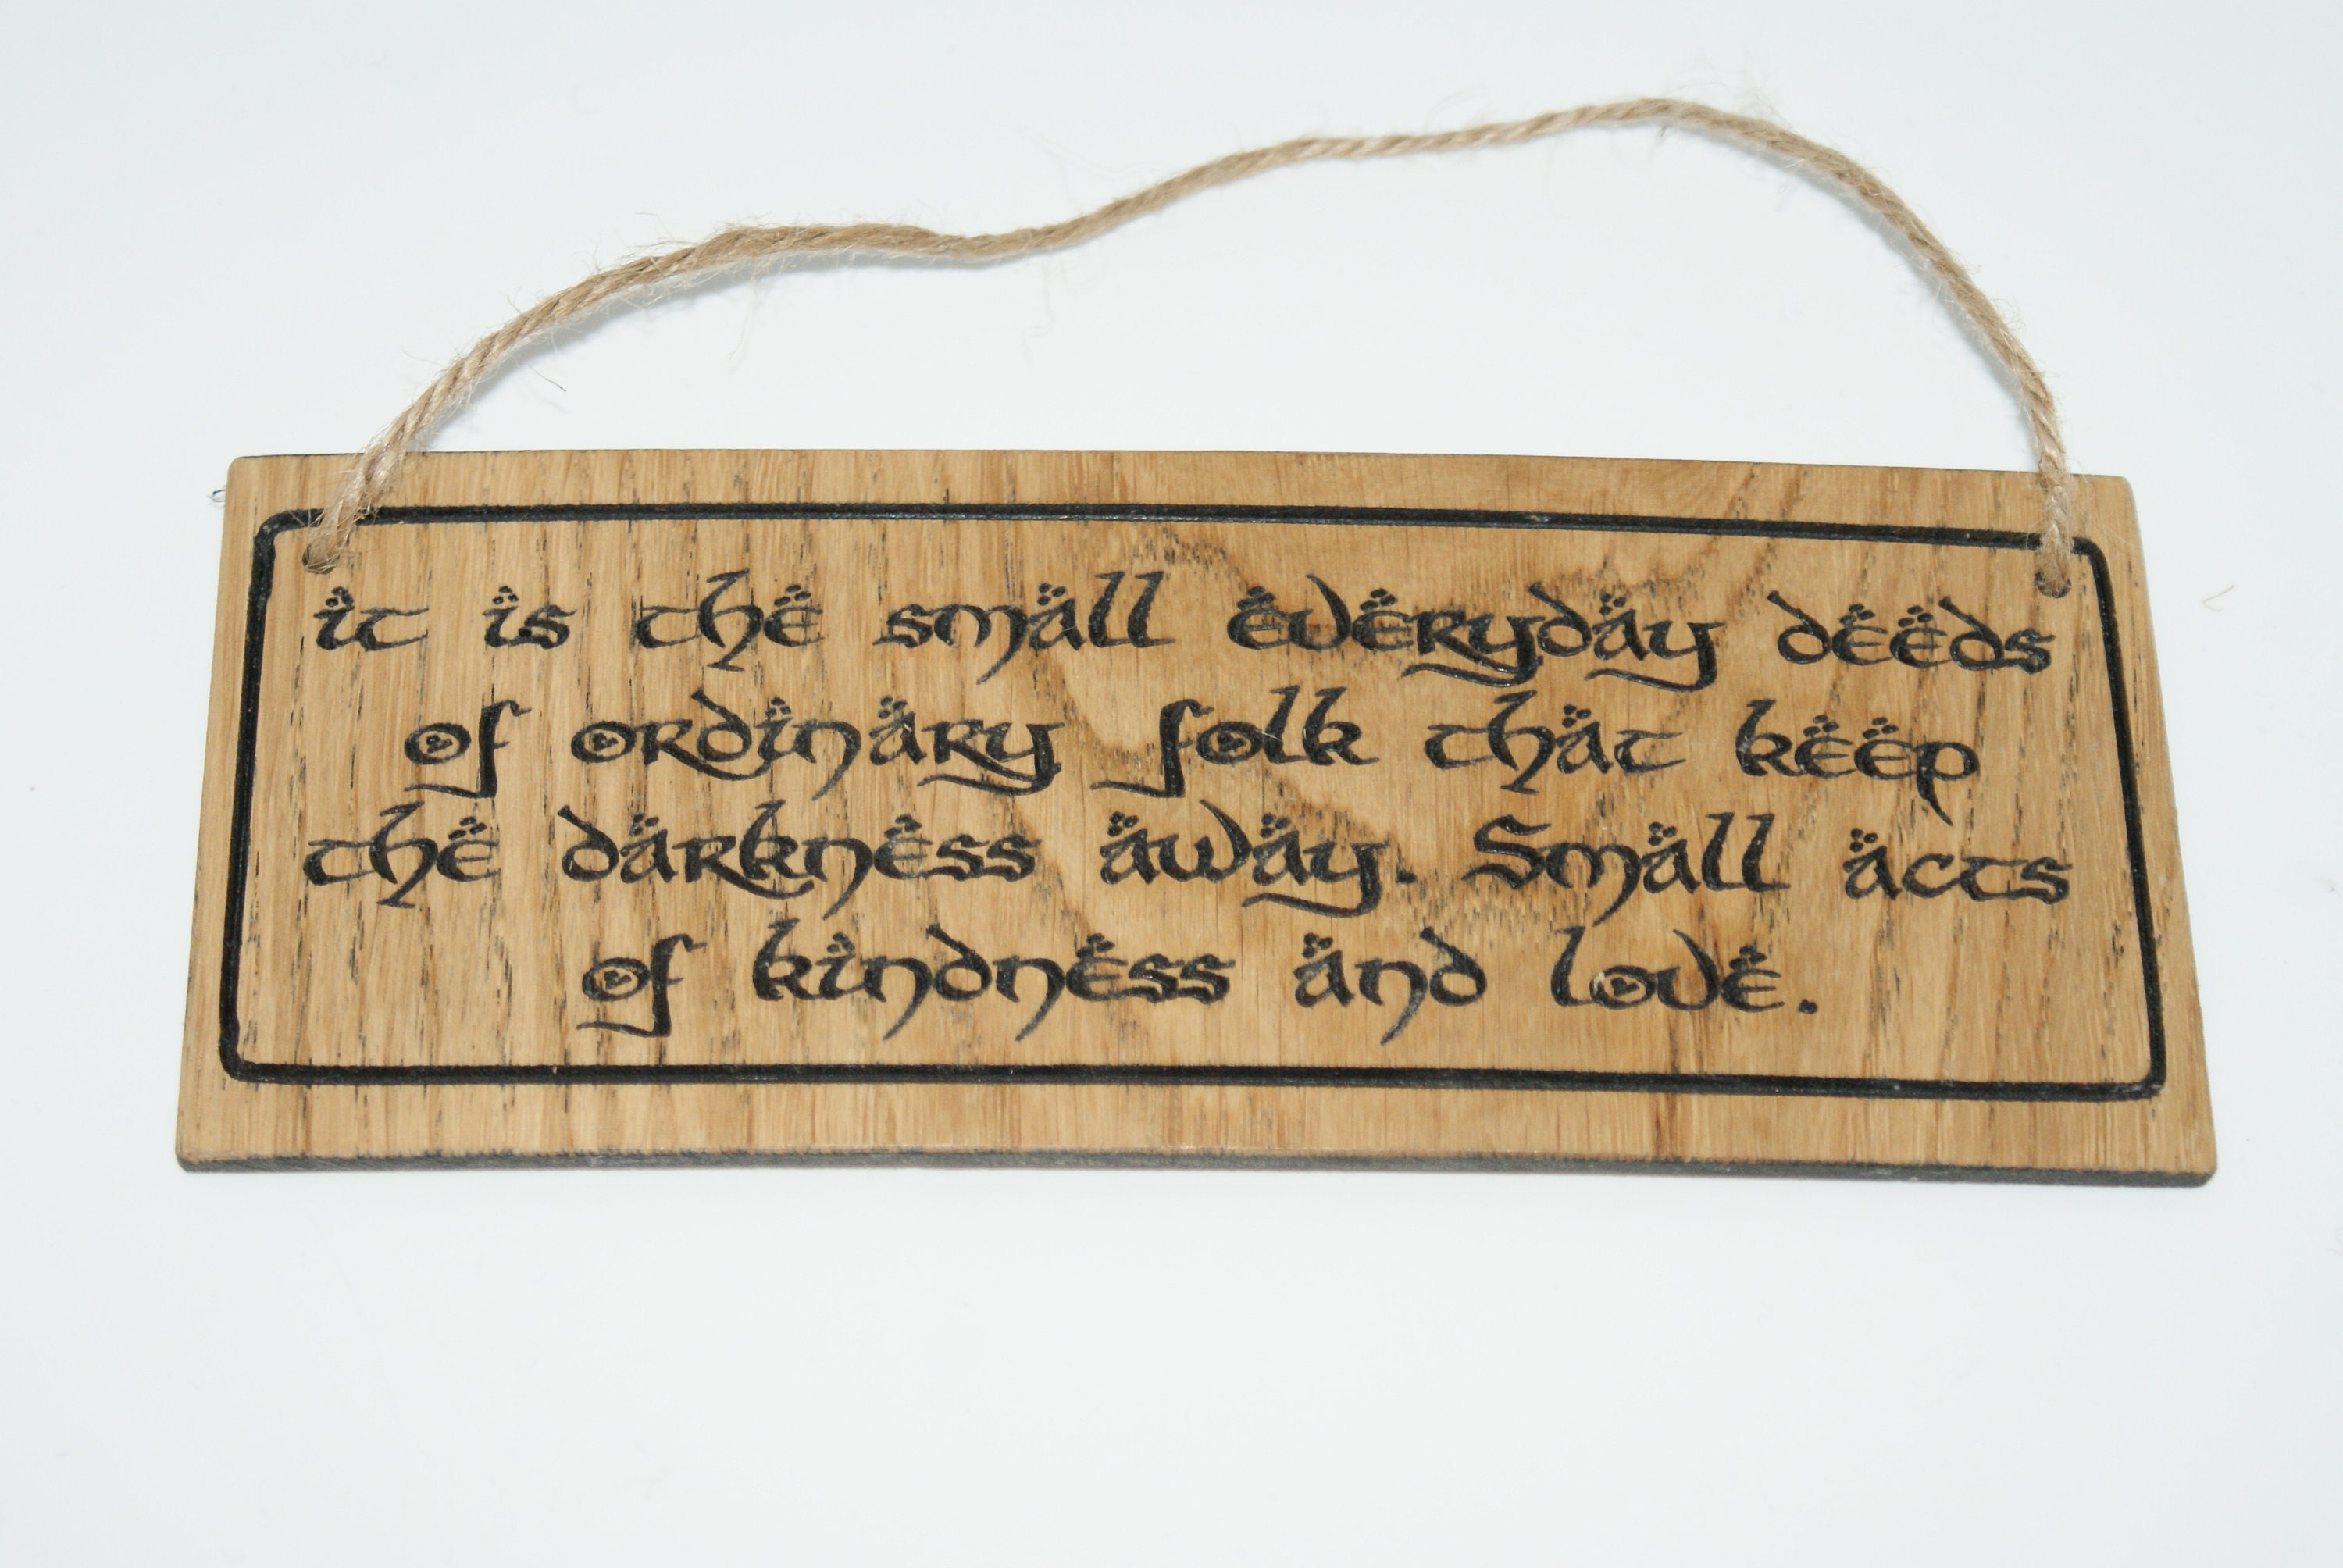 it is the small everyday deeds
of ordinary folk that keep
the darkness away. Small acts
of kindness and love.